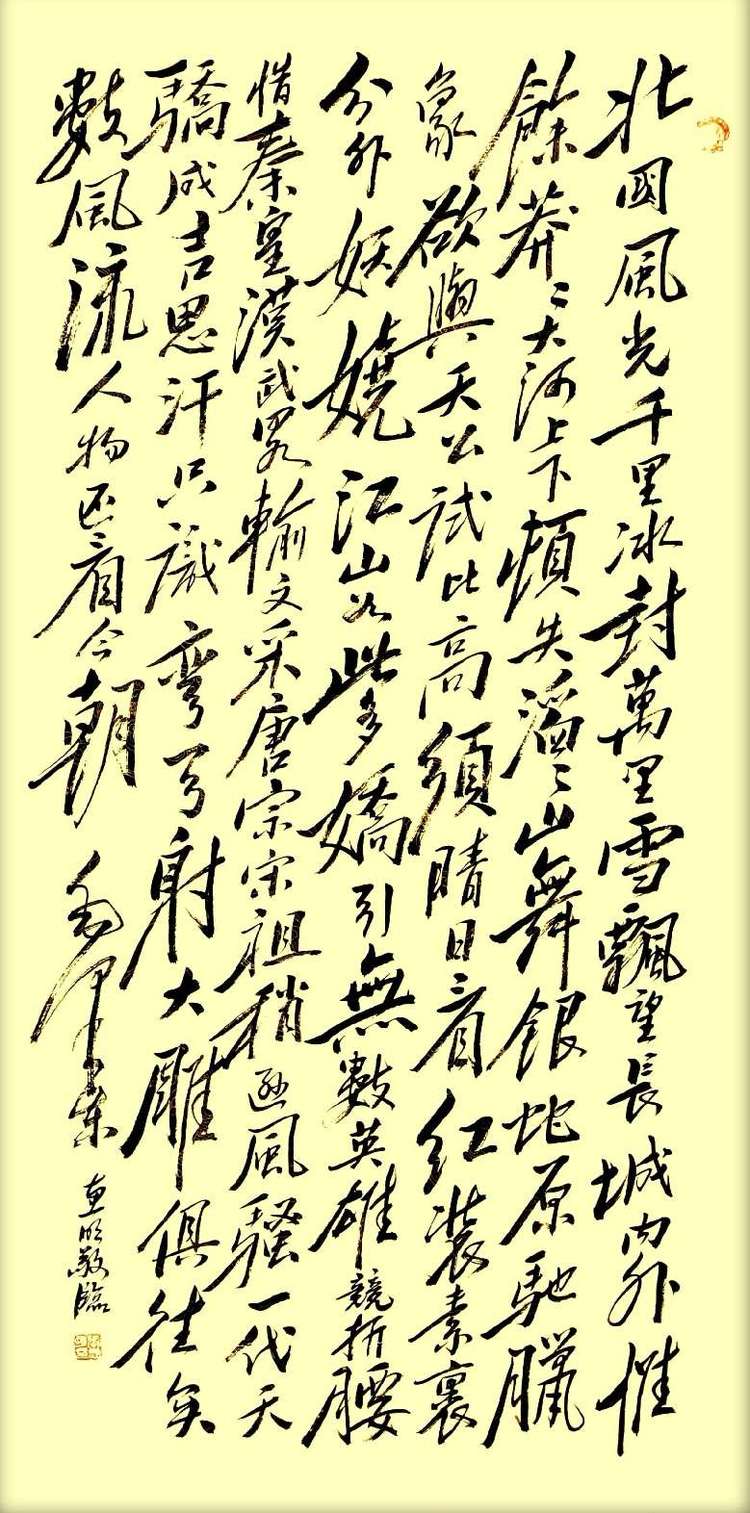 北國風光千里冰封萬里雪飄望長城内外惟
餘莽〻大河上下頓失滔〻山舞銀蛇原馳臘
象欲與天公試比高須晴日看紅裝素裹
分外妖嬈江山如此多嬌引無數英雄競折腰
惜秦皇漢武畧輸文采唐宗宋祖稍遜風騷一代天
驕成吉思汗只識彎弓射大雕俱往矣
數風流人物还看今朝
毛澤東
敬臨